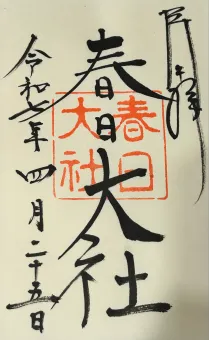 奉拝
春日大社
春日大社
令和七年四月二十五日